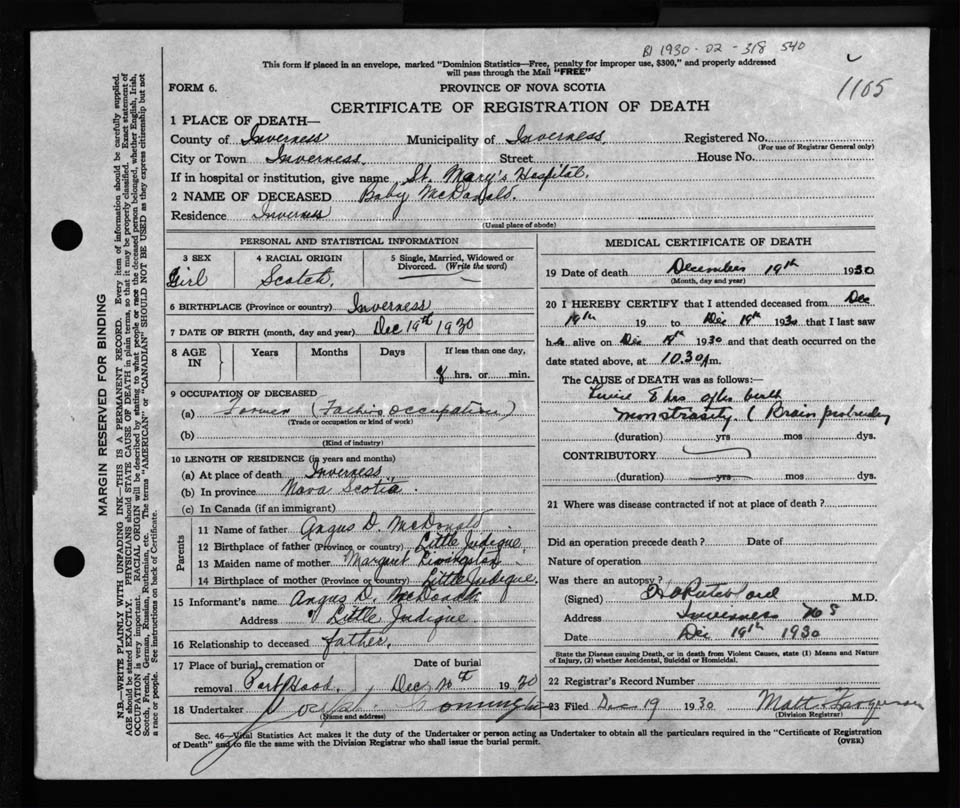 B1 1930 - 02 - 318 540
1105
This form if placed in an envelope, marked "Dominion Statistics—Free, penalty for improper use, $300," and properly addressed
will pass through the Mail "FREE"
FORM 6.
PROVINCE OF NOVA SCOTIA
CERTIFICATE OF REGISTRATION OF DEATH
1 PLACE OF DEATH—
County of Inverness Municipality of Inverness. Registered No.
(For use of Registrar General only)
City or Town Inverness. Street House No.
If in hospital or institution, give name St. Mary's Hospital.
2 NAME OF DECEASED Baby McDonald.
Residence Inverness
(Usual place of abode)
MARGIN RESERVED FOR BINDING
N.B.—WRITE PLAINLY WITH UNFADING INK—THIS IS A PERMANENT RECORD. Every item of information should be carefully supplied.
AGE should be stated EXACTLY. PHYSICIANS should STATE CAUSE OF DEATH in plain terms, so that it may be properly classified. Exact statement of
OCCUPATION is very important. RACIAL ORIGIN will be described by stating to what people or race the deceased person belonged, whether English, Irish,
Scotch, French, German, Russian, Ruthenian, etc. The terms "AMERICAN" or "CANADIAN" SHOULD NOT BE USED as they express citizenship but not
a race or people. See instructions on back of Certificate.
PERSONAL AND STATISTICAL INFORMATION
3 SEX
Girl
4 RACIAL ORIGIN
Scotch.
5 Single, Married, Widowed or
Divorced. (Write the word)
6 BIRTHPLACE (Province or country) Inverness
7 DATE OF BIRTH (month, day and year) Dec 19th 1930
8 AGE
IN
Years
Months
Days
If less than one day,
8 hrs. or min.
9 OCCUPATION OF DECEASED
(a) Farmer (Father's occupation)
(Trade or occupation or kind of work)
(b)
(Kind of industry)
10 LENGTH OF RESIDENCE (in years and months)
(a) At place of death Inverness
(b) In province Nova Scotia.
(c) In Canada (if an immigrant)
Parents
11 Name of father Angus D. McDonald
12 Birthplace of father (Province or country) Little Judique
13 Maiden name of mother Margaret Livingston
14 Birthplace of mother (Province or country) Little Judique.
15 Informant's name Angus D. McDonald
Address Little Judique
16 Relationship to deceased father.
17 Place of burial, cremation or
removal Port Hood.
Date of burial
Dec 20th 1930
18 Undertaker
(Name and address)
MEDICAL CERTIFICATE OF DEATH
19 Date of death December 19th 1930
(Month, day and year)
20 I HEREBY CERTIFY that I attended deceased from Dec
19th 19 to Dec 19th 1930 that I last saw
h alive on Dec 19th 1930 and that death occurred on the
date stated above, at 10.30 m.
The CAUSE of DEATH was as follows:—
8 hrs after birth
monstrosity (Brain protruding
(duration) yrs mos dys.
CONTRIBUTORY
(duration) yrs mos dys.
21 Where was disease contracted if not at place of death?
Did an operation precede death? Date of
Nature of operation
Was there an autopsy?
(Signed) M.D.
Address Inverness N S
Date Dec 19th 1930
State the Disease causing Death, or in death from Violent Causes, state (1) Means and Nature
of Injury, (2) whether Accidental, Suicidal or Homicidal.
22 Registrar's Record Number
23 Filed Dec 19 1930 Matt Ferguson
(Division Registrar)
Sec. 46—Vital Statistics Act makes it the duty of the Undertaker or person acting as Undertaker to obtain all the particulars required in the "Certificate of Registration
of Death" and to file the same with the Division Registrar who shall issue the burial permit.
(OVER)